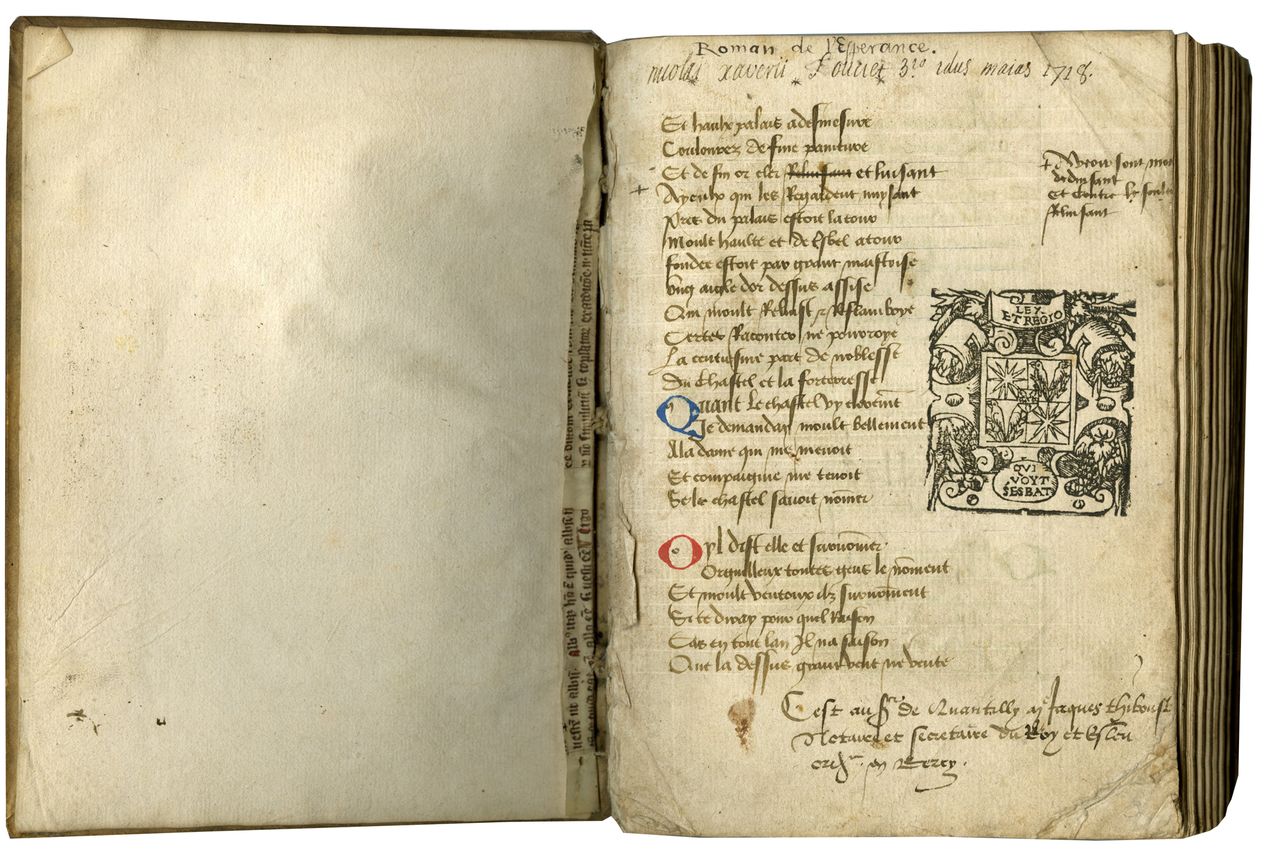 Roman de l'Esperance.
nicolai xaverii Fouriet 3º idus maias 1718.
Et haulx palais a desmesure
Coulourez de fine painture
Et de fin or cler Reluisant et luisant
+ A yeulx qui les Regardent nuysant
Pres du palais estoit la tour
Moult haulte et de bel atour
fondee estoit par grant maistrise
Ung aigle dor dessus assise
Qui moult Reluist et flamboye
Certes Raconter ne pourroye
La centiesme part de noblesse
Du chastel et la forteresse
Quant le chastel vy clerement
Je demanday moult bellement
A la dame qui me menoit
Et compaignie me tenoit
Se le chastel savoit nomer
Oyl dist elle et surnommer
Orguilleux toutes gens le noment
Et moult venteux ilz surnoment
Si te diray pour quel Raison
Car en tout lan Il na saison
Que la dessus grant vent ne vente
+ sont
disant
et contre le
Reluisant
LEX
ET REGIO
QVI
VOYT
SESBAT
C'est au Sr de Quantilly Jaques thiboust
Notaire et secretaire du Roy et Esleu
en Berry.